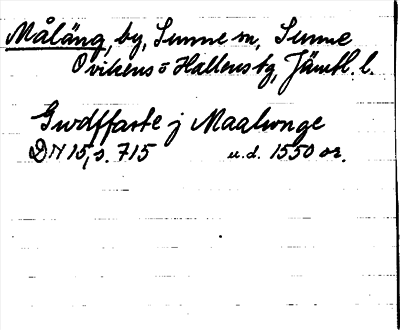 Måläng, by, Sunne sn, Sunne
Ovikens o Hallens tg, Jämtl. l.
Gudffaste j Maalunge
DN 15, s. 715 u.d. 1550 or.